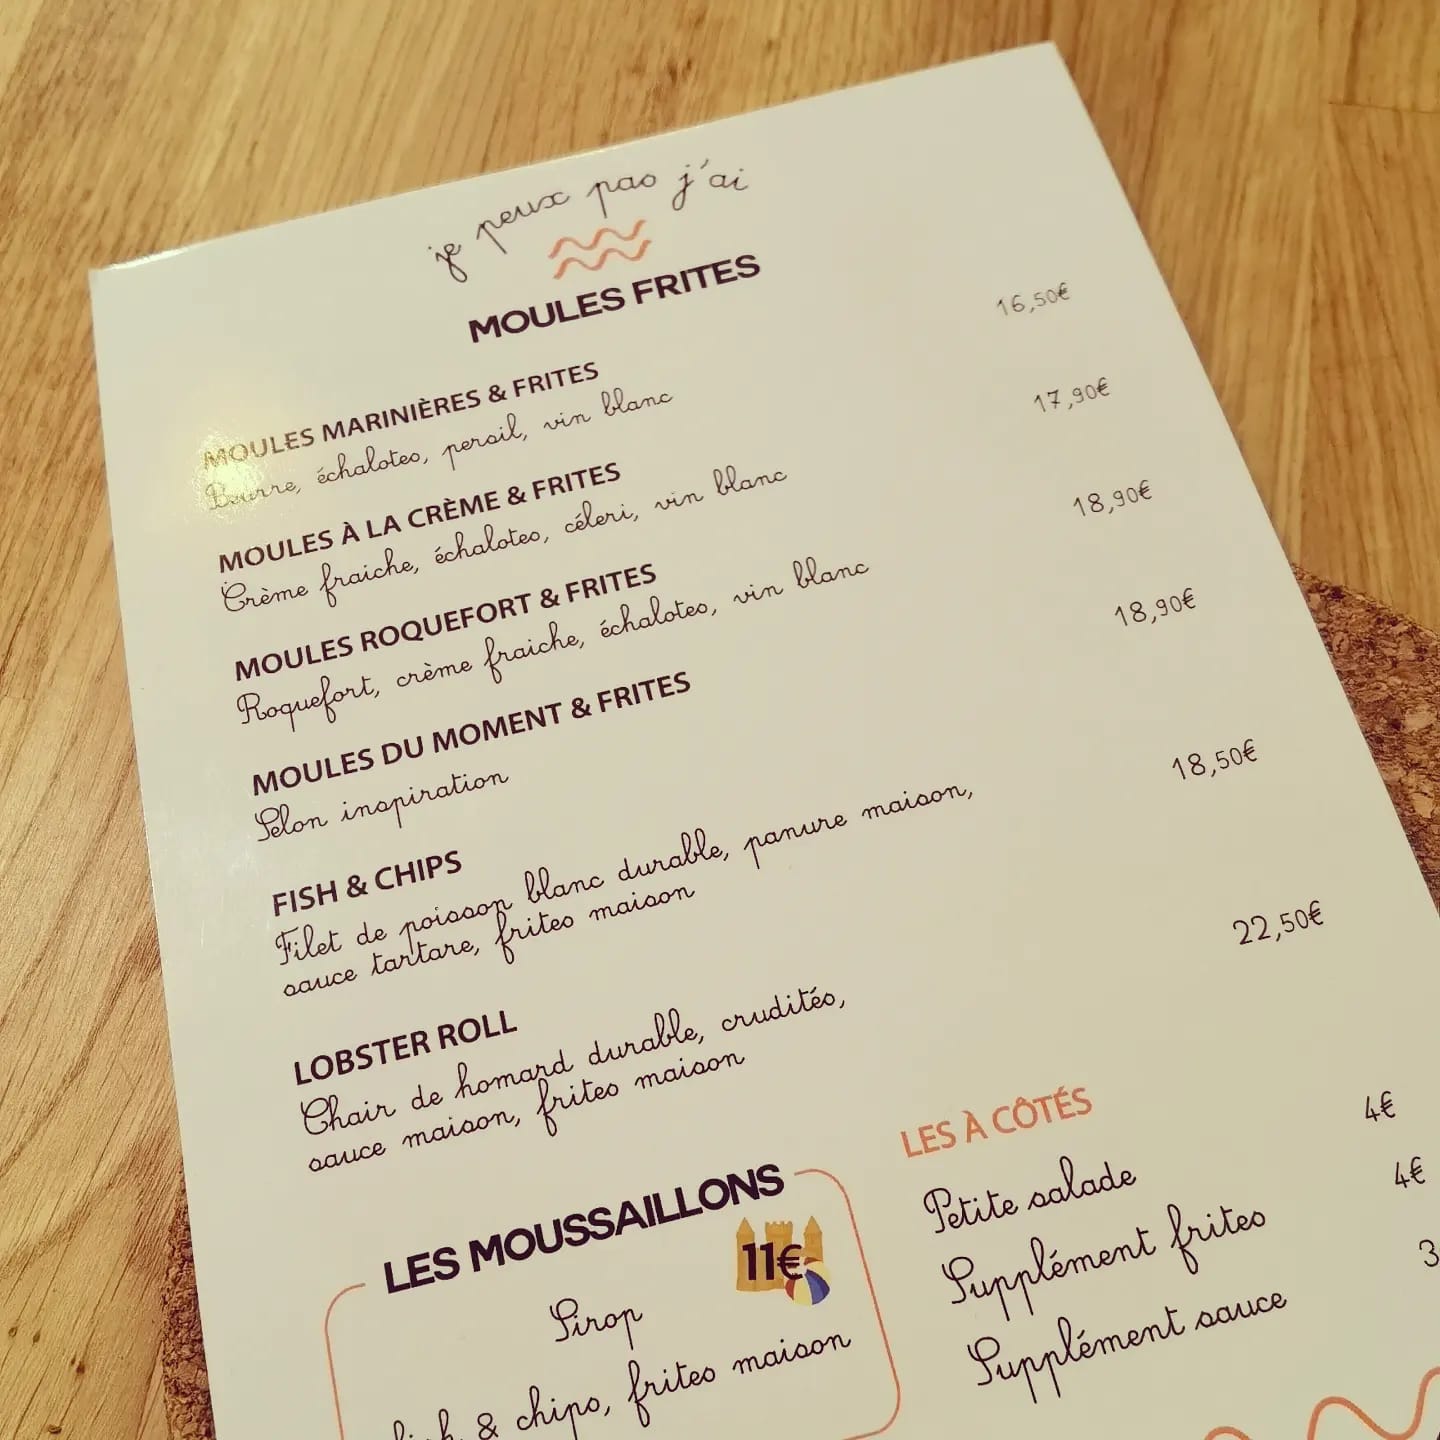 je peux pas j'ai
MOULES FRITES
MOULES MARINIÈRES & FRITES 16,50€
Beurre, échalotes, persil, vin blanc
MOULES À LA CRÈME & FRITES 17,90€
Crème fraiche, échalotes, céleri, vin blanc
MOULES ROQUEFORT & FRITES 18,90€
Roquefort, crème fraiche, échalotes, vin blanc
MOULES DU MOMENT & FRITES 18,90€
Selon inspiration
FISH & CHIPS 18,50€
Filet de poisson blanc durable, panure maison,
sauce tartare, frites maison
LOBSTER ROLL 22,50€
Chair de homard durable, crudités,
sauce maison, frites maison
LES MOUSSAILLONS
11€
Sirop
fish & chips, frites maison
LES À CÔTÉS
Petite salade 4€
Supplément frites 4€
Supplément sauce 3